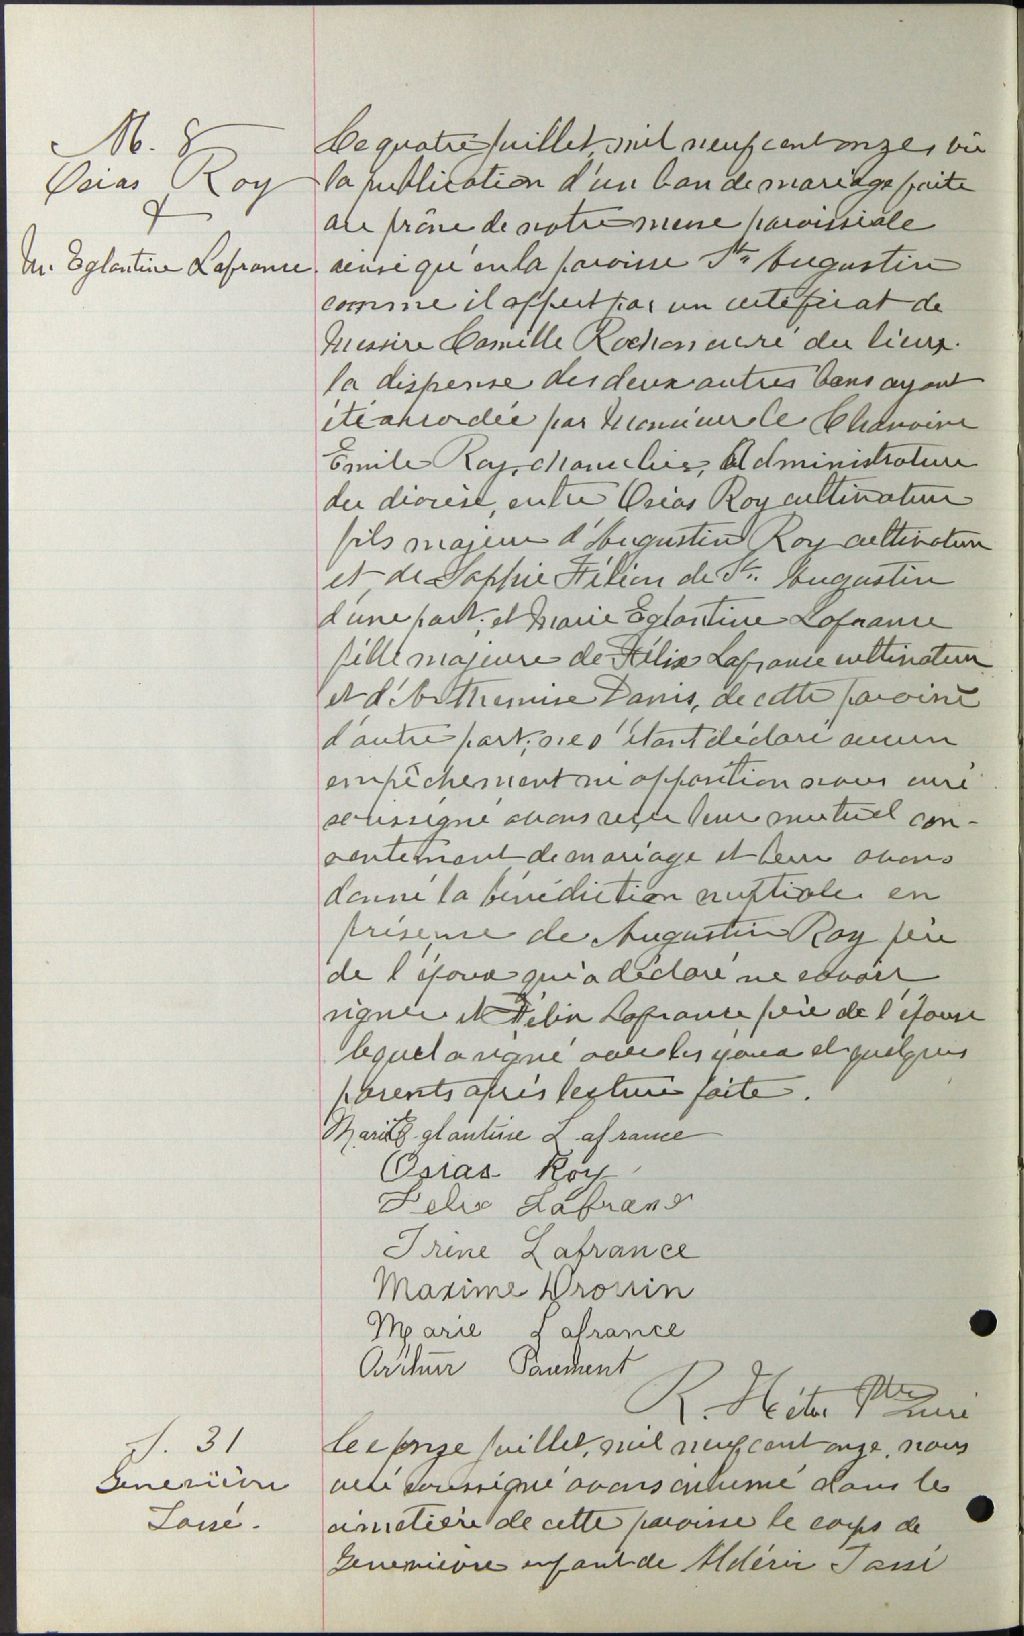 M. 8
Osias Roy
&
M. Eglantine Lafrance.
Le quatre Juillet, mil neuf cent onze, vu
la publication d'un ban de mariage faite
au prône de notre messe paroissiale
ainsi qu'en la paroisse St. Augustin
comme il appert par un certificat de
Messire Camille Rochon curé du lieu,
la dispense des deux autres bans ayant
été accordée par Monsieur le Chanoine
Emile Roy, chancelier, Administrateur
du diocèse, entre Osias Roy cultivateur
fils majeur d'Augustin Roy cultivateur
et de Sophie Filion de St. Augustin
d'une part; et Marie Eglantine Lafrance
fille majeure de Félix Lafrance cultivateur
et d'Arthemise Danis, de cette paroisse
d'autre part; ne s'étant déclaré aucun
empêchement ni opposition nous curé
soussigné avons reçu leur mutuel con-
sentement de mariage et leur avons
donné la bénédiction nuptiale en
présence de Augustin Roy père
de l'époux qui a déclaré ne savoir
signer et Félix Lafrance père de l'épouse
lequel a signé avec les époux et quelques
parents après lecture faite.
Marie Eglantine Lafrance
Osias Roy
Felix Lafrance
Irine Lafrance
Maxime Drouin
Marie Lafrance
Arthur Paiement
R. Hétu Ptre Curé
S. 31
Geneviève
Tassé.
Le onze Juillet, mil neuf cent onze, nous
curé soussigné avons inhumé dans le
cimetière de cette paroisse le corps de
Geneviève enfant de Aldéric Tassé